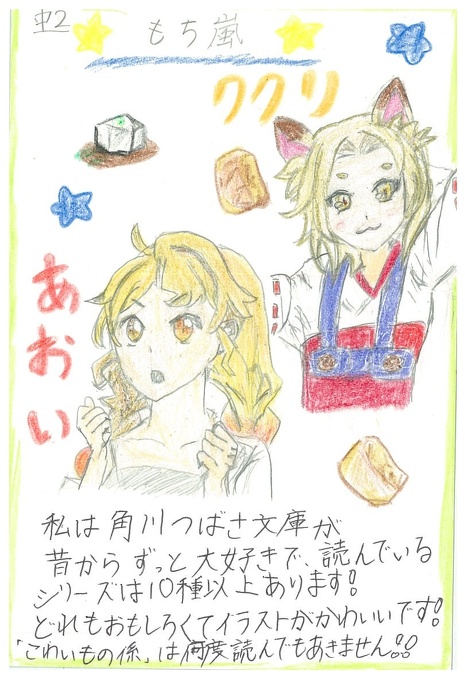 中2
もち嵐
ククリ
あおい
私は角川つばさ文庫が
昔からずっと大好きで、読んでいる
シリーズは10種以上あります!
どれもおもしろくてイラストがかわいいです!
「こわいもの係」は何度読んでもあきません!!